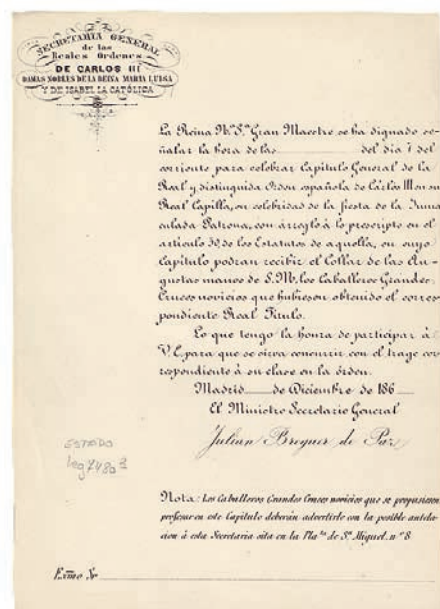 SECRETARIA GENERAL
de las
Reales Ordenes
DE CARLOS III
DAMAS NOBLES DE LA REINA MARIA LUISA
Y DE ISABEL LA CATÓLICA
La Reina Nª Sª Gran Maestre se ha dignado se-
ñalar la hora de las del dia 7 del
corriente para celebrar Capítulo General de la
Real y distinguida Orden española de Carlos III en su
Real Capilla, en celebridad de la fiesta de la Inma-
culada Patrona, con arreglo á lo prescripto en el
artículo 30, de los Estatutos de aquella, en cuyo
Capítulo podran recibir el Collar de las Au-
gustas manos de S.M. los Caballeros Grandes
Cruces novicios que hubiesen obtenido el corres-
pondiente Real Título.
Lo que tengo la honra de participar á
V.E. para que se sirva concurrir con el trage cor-
respondiente á su clase en la órden.
Madrid de Diciembre de 186
El Ministro Secretario General
Julian Broguer de Paz
Nota: Los Caballeros Grandes Cruces novicios que se propusiesen
profesar en este Capítulo deberán advertirlo con la posible antela-
cion á esta Secretaria sita en la Pla.ta de Sn. Miguel, nº 8
Exmo Sr
ESTADO
leg 7480